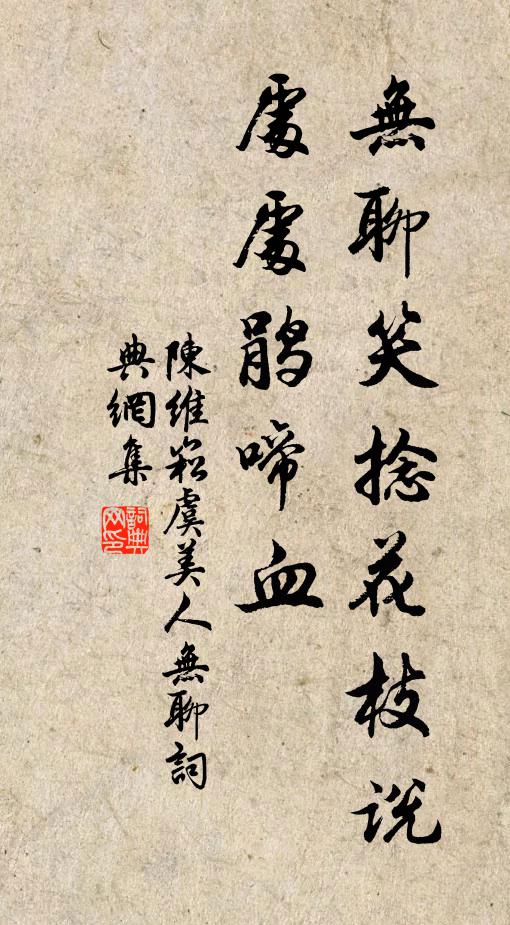 無聊笑捻花枝說
處處鹃啼血
陳維崧虞美人無聊詞
典網集
詞典网印